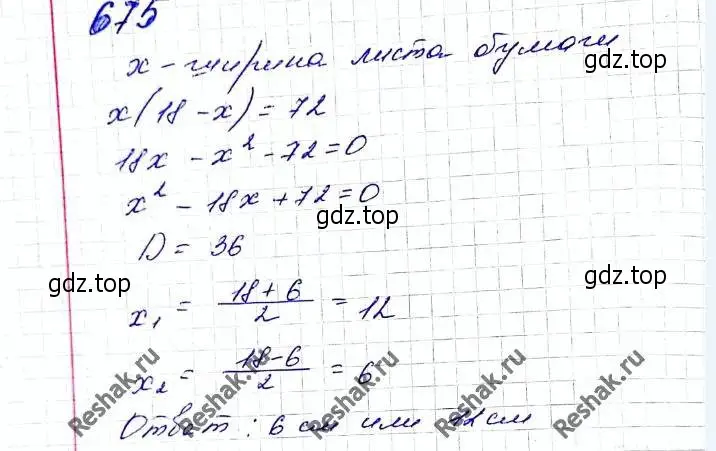 675
x - ширина листа бумаги
gdz.top
x(18 - x) = 72
18x - x² - 72 = 0
x² - 18x + 72 = 0
gdz.top
D = 36
gdz.top
gdz.top
x₁ = (18 + 6)/2 = 12
x₂ = (18 - 6)/2 = 6
Ответ: 6 см или 12 см
Reshak.ru
Reshak.ru
Reshak.ru
Reshak.ru
Reshak.ru